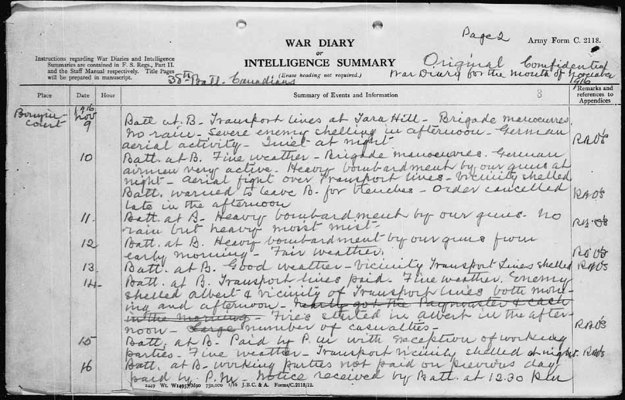 Page 2
WAR DIARY
Army Form C. 2118.
OR
Instructions regarding War Diaries and Intelligence
INTELLIGENCE SUMMARY
Original Confidential
Summaries are contained in F. S. Regs., Part II.
and the Staff Manual respectively. Title Pages
will be prepared in manuscript.
(Erase heading not required.)
War Diary for the month of November
Batt. Canadians
1916
Place
Date
Hour
Summary of Events and Information
8
Remarks and
references to
Appendices
1916
Nov
9
Batt at B. Transport lines at Tara Hill - Brigade manoeuvres.
No rain - Severe enemy shelling in afternoon - German
aerial activity - Quiet at night
10
Batt. at B. Fine weather - Brigade manoeuvres. German
airmen very active. Heavy bombardment by our guns at
night - Aerial fight over Transport lines - Vicinity shelled
Batt. warned to leave B. for trenches - Order cancelled
late in the afternoon
11.
Batt. at B - Heavy bombardment by our guns. No
rain but heavy moist mist -
12
Batt. at B. Heavy bombardment by our guns from
early morning - Fair weather.
13.
Batt. at B. Good weather - Vicinity Transport Lines shelled
14
Batt. at B. Transport lines paid. Fine weather. Enemy
shelled Albert & vicinity of Transport lines both morn-
ing and afternoon - nearly got the Paymaster & cash
in the morning - Fires started in Albert in the after-
noon - Large number of casualties -
15
Batt. at B. Paid by P.M. with exception of working
parties - Fine weather - Transport vicinity shelled at night.
16
Batt. at B. working parties not paid on previous day
paid by P.M. - Notice received by Batt. at 12.30 P.M
J.B.C. & A. Forms/C.2118/12.